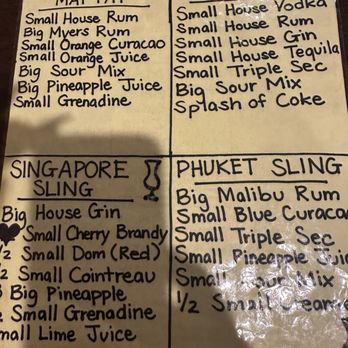 MAI TAI
Small House Rum
Big Myers Rum
Small Orange Curacao
Small Orange Juice
Big Sour Mix
Big Pineapple Juice
Small Grenadine
Small House Vodka
Small House Rum
Small House Gin
Small House Tequila
Small Triple Sec
Big Sour Mix
Splash of Coke
SINGAPORE
SLING
Big House Gin
Small Cherry Brandy
/2 Small Dom (Red)
/2 Small Cointreau
Big Pineapple
Small Grenadine
mall Lime Juice
PHUKET SLING
Big Malibu Rum
Small Blue Curacao
Small Triple Sec
Small Pineapple Jui
Small Sour Mix
1/2 Small